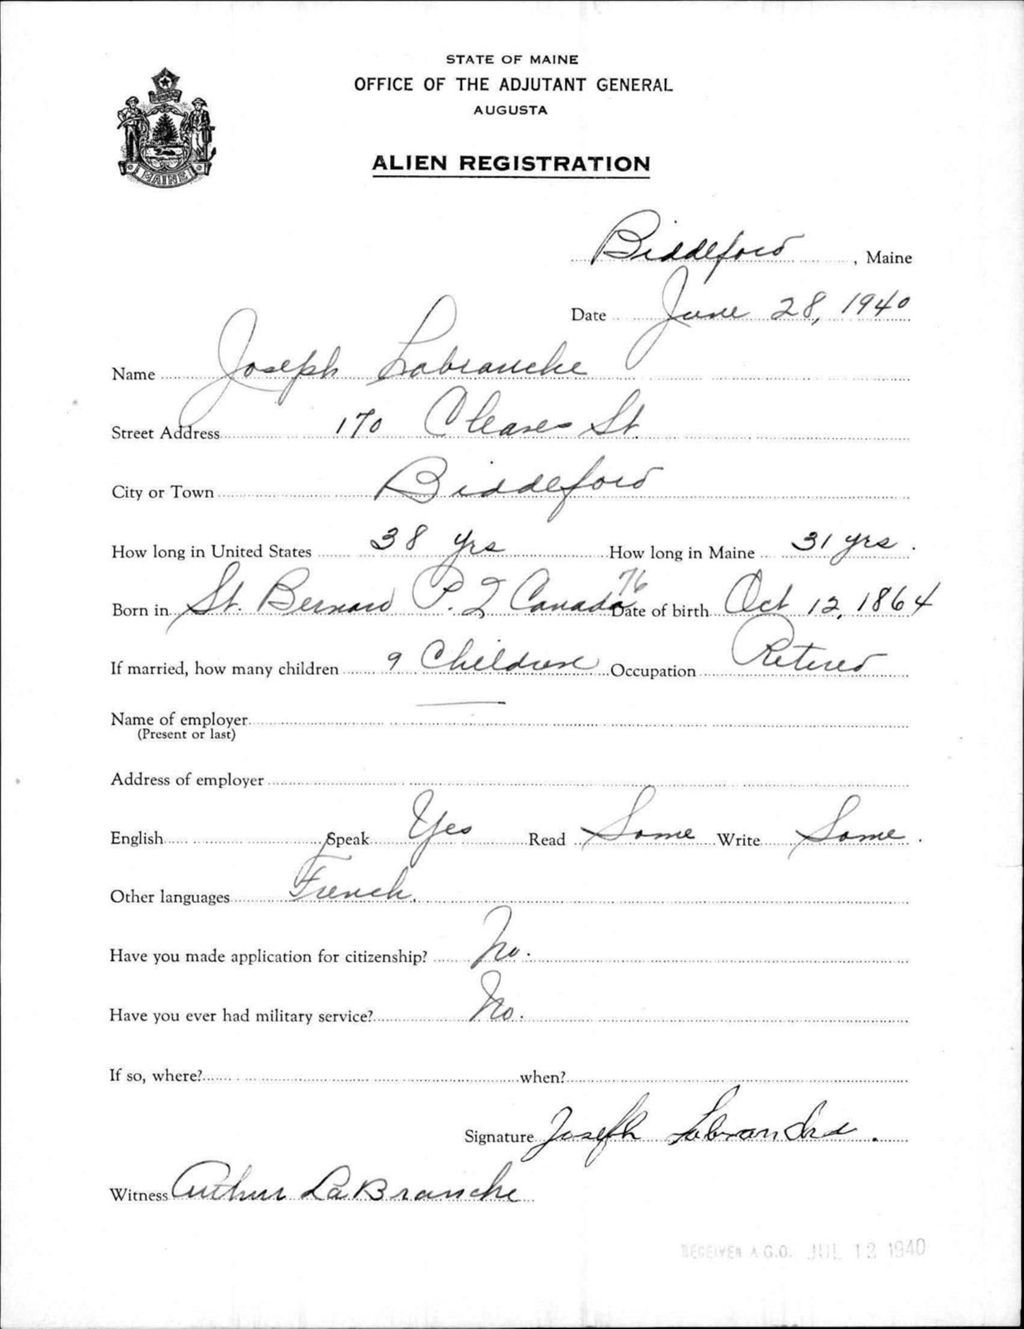 STATE OF MAINE
OFFICE OF THE ADJUTANT GENERAL
AUGUSTA
MAINE
ALIEN REGISTRATION
Biddeford, Maine
Date June 28, 1940
Name Joseph Labranche
Street Address 170 Cleaves St.
City or Town Biddeford
How long in United States 38 yrs How long in Maine 31 yrs.
76
Born in St. Bernard P.Q Canada Date of birth Oct 12, 1864
If married, how many children 9 Children Occupation Retired
Name of employer
(Present or last)
Address of employer
English Speak Yes Read Some Write Some.
Other languages French.
Have you made application for citizenship? No.
Have you ever had military service? No.
If so, where? when?
Signature Joseph Labranche.
Witness Arthur LaBranche
RECEIVED A.G.O. JUL 12 1940